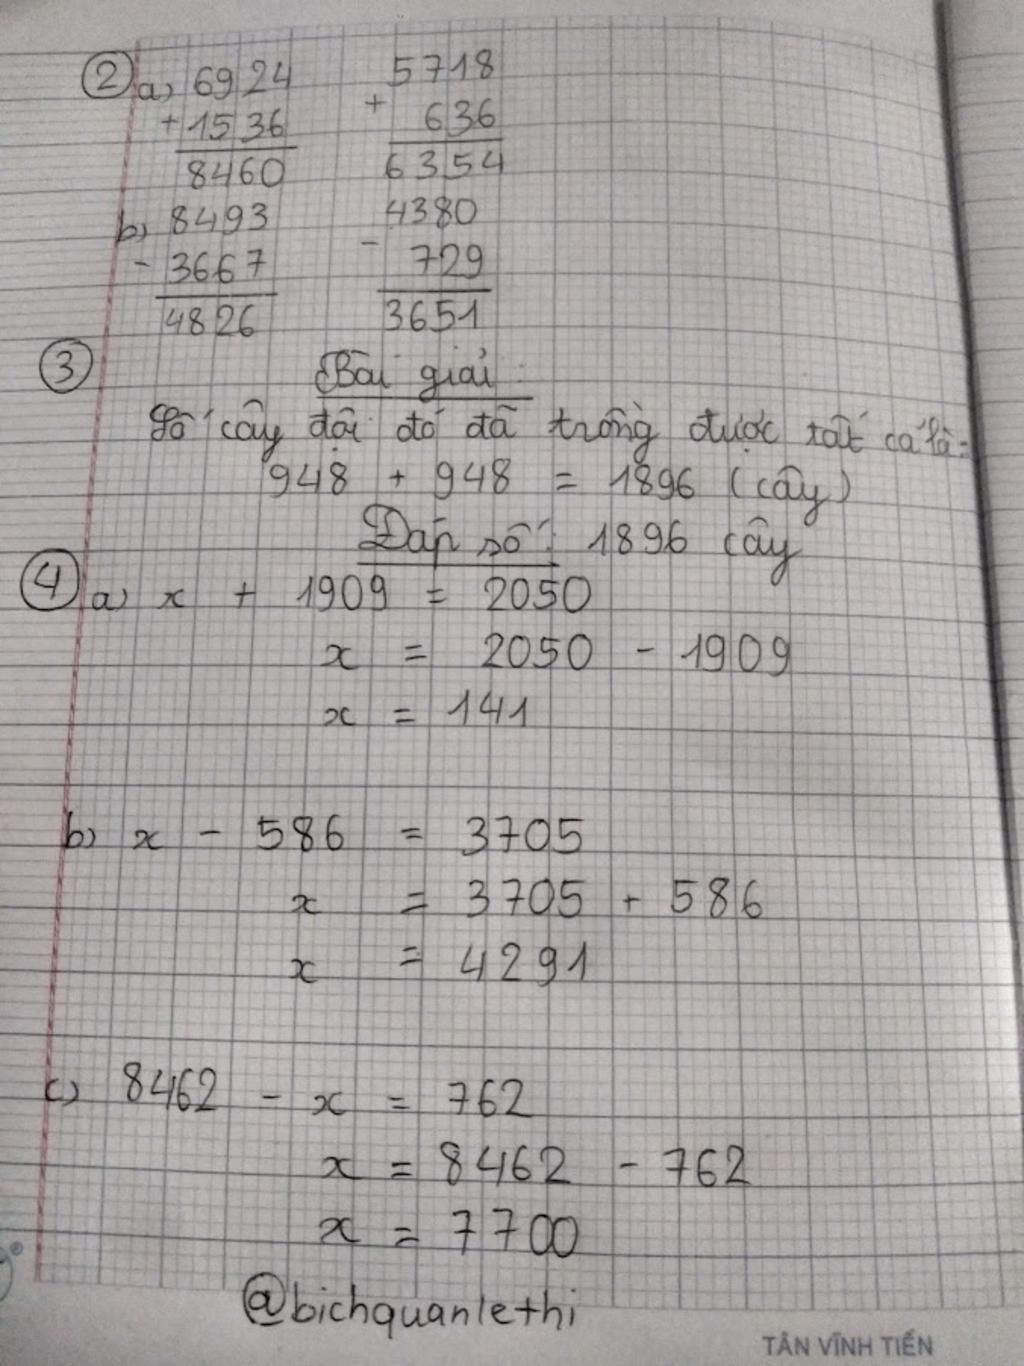 ② a) 6924 5718
+ 1536 + 636
8460 6354
b) 8493 4380
- 3667 - 729
4826 3651
③ Bài giải:
Số cây đội đó đã trồng được tất cả là:
948 + 948 = 1896 (cây)
Đáp số: 1896 cây
④ a) x + 1909 = 2050
x = 2050 - 1909
x = 141
b) x - 586 = 3705
x = 3705 + 586
x = 4291
c) 8462 - x = 762
x = 8462 - 762
x = 7700
@bichquanlethi
TÂN VĨNH TIẾN